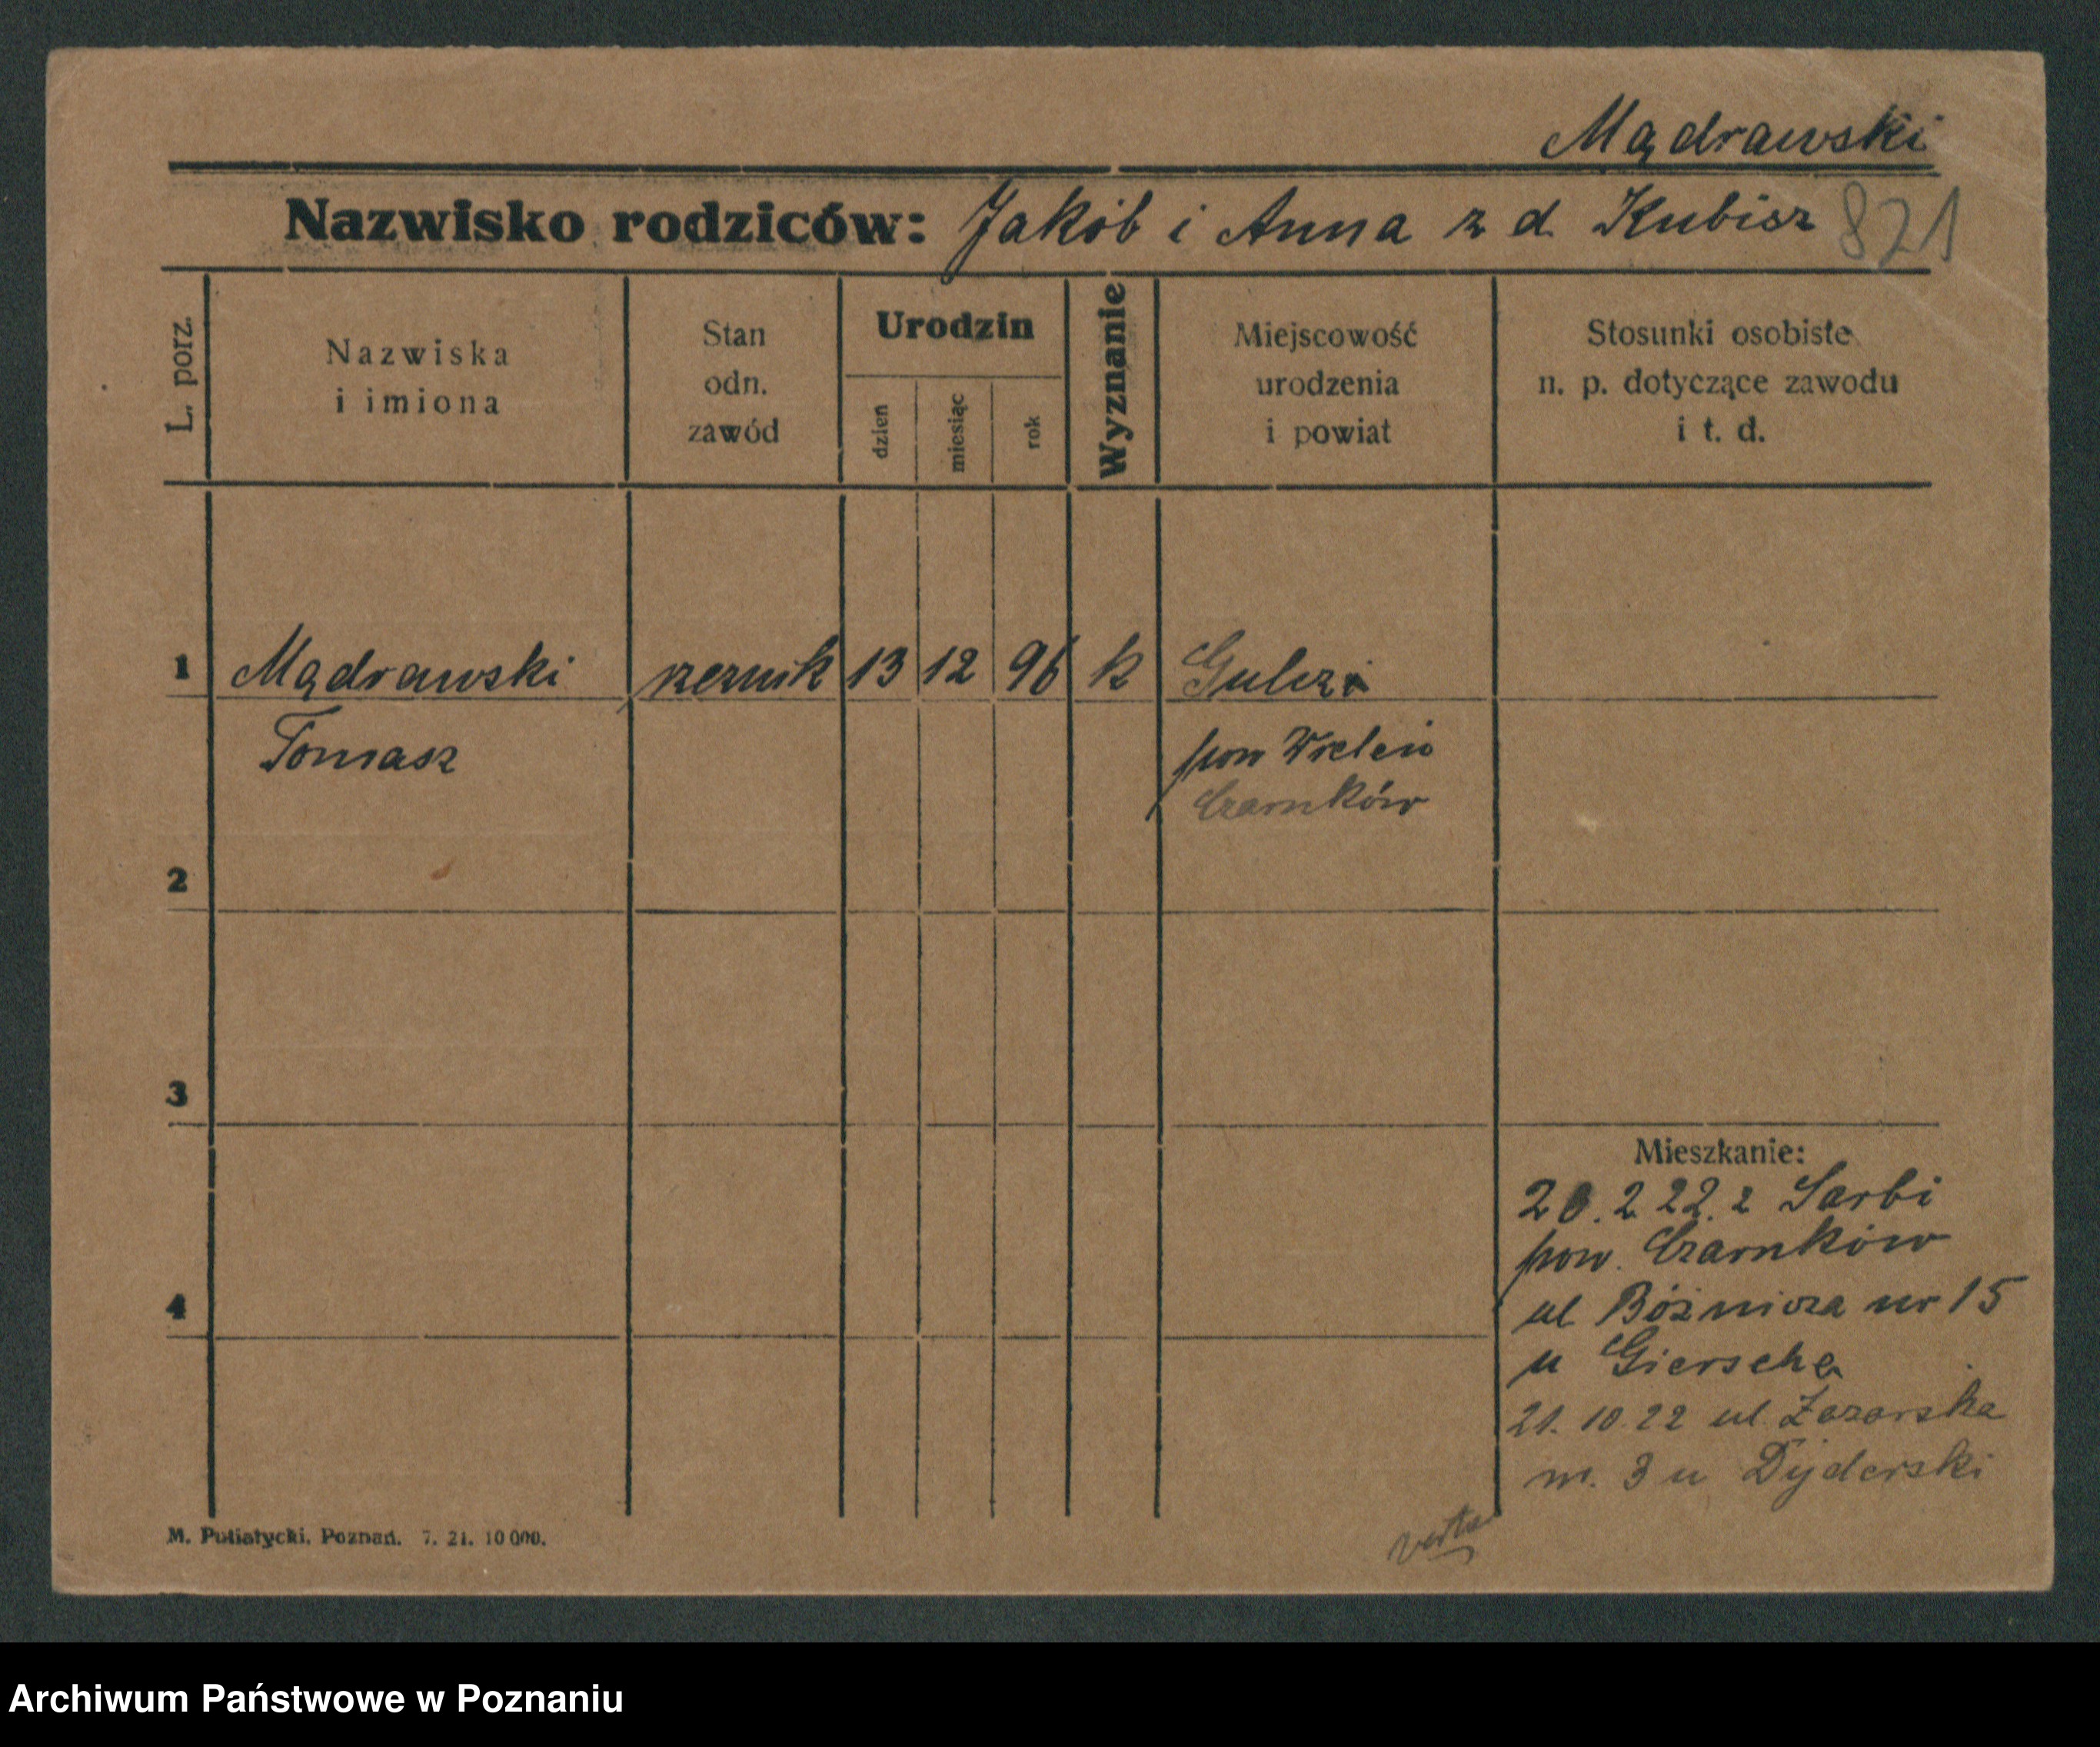 Mądrawski
Nazwisko rodziców: Jakób i Anna z d. Kubisz 821
L. porz.
Nazwiska
i imiona
Stan
odn.
zawód
Urodzin
dzień
miesiąc
rok
Wyznanie
Miejscowość
urodzenia
i powiat
Stosunki osobiste
n. p. dotyczące zawodu
i t. d.
1 Mądrawski rzeznik 13 12 96 k Gulcz
Tomasz pow Wieleń
Czarnków
2
3
4
Mieszkanie:
20. 2 22. z Sarbi
pow. Czarnków
ul Bóżnicza nr 15
u Giersche
21. 10. 22 ul. Łazarska
m. 3 u Dyderski
verte
M. Putiatycki, Poznań. 7. 21. 10 000.
Archiwum Państwowe w Poznaniu